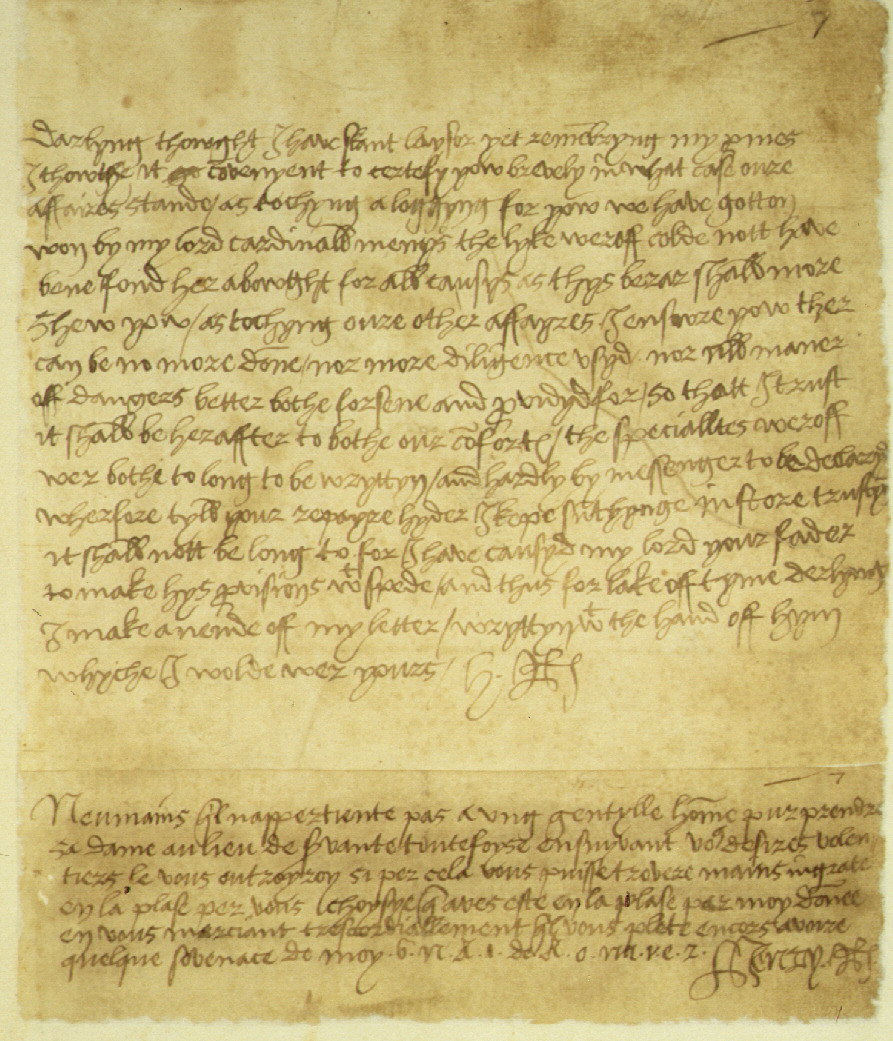 7
Darlyng thowght I have skant laysor yet remēbryng my pmes
I thowthe it cōvenyent to certefy yow brevely in what case oure
affaires stande / as tochyng a loggyng for yow we have gotton
won by my lord cardinall menys the lyke weroff colde nott have
bene fond her abowght for all causys as thys berar shall more
shew yow / as tochyng oure other affayres I ensure yow ther
can be no more done / nor more diligence vsyd nor all maner
off dangers better bothe forsene and pvidyd for / so thatt I trust
it shall be heraffter to bothe our cōforte / the specialltes weroff
wer bothe to long to be wryttyn / and hardly by messenger to be declaryd
wherfore tyll your repayre hyder I kepe sūthynge in store trustyng
it shall nott be long to for I have causyd my lord your fader
to make hys pvisions wt spede / and thus for lake off tyme derlyng
I make a nende off my letter / wryttyn wt the hand off hym
whyche I wolde wer yours / H. R
7
Neumains ql nappertiente pas a vng gentylle hōme pur prendre
sa dame au lieu de svante toutefoyse ensuivant vos desires volen
tiers le vous outroyroy si per cela vous puisse trovere mains ingrate
en la plase per vous choysye q aves este en la plase per moy donee
en vous merciant trescordiallement ql vous plete encors avoire
quelque sovenace de moy . 6. n. A. 1. de A. o. na. ve. z.